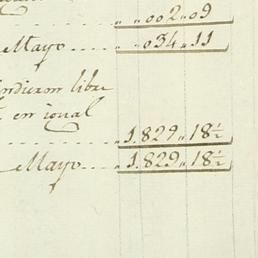 „ „ 002 „ 09
Mayo . . . . „ „ 034 „ 11
libr
en igual
. . . . „ 1.829 „ 18½
Mayo . . . . „ 1.829 „ 18½